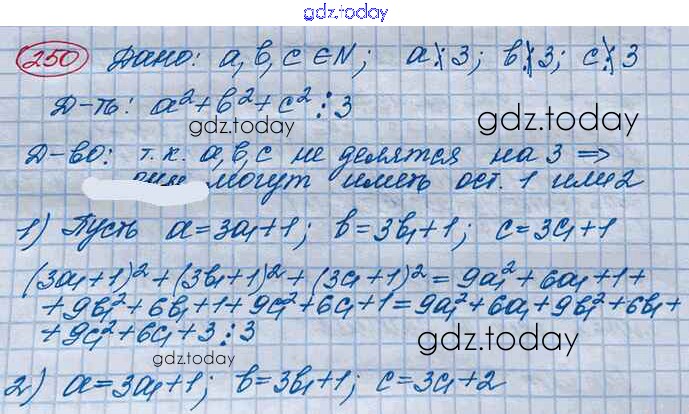 gdz.today
250 Дано: a, b, c ∈ N; a⋮̸3; b⋮̸3; c⋮̸3
Д-ть: a²+b²+c²⋮3
gdz.today
gdz.today
Д-во: т.к. a, b, c не делятся на 3 ⇒
они могут иметь ост. 1 или 2
1) Пусть a=3a₁+1; b=3b₁+1; c=3c₁+1
(3a₁+1)²+(3b₁+1)²+(3c₁+1)²=9a₁²+6a₁+1+
+9b₁²+6b₁+1+9c₁²+6c₁+1=9a₁²+6a₁+9b₁²+6b₁+
+9c₁²+6c₁+3⋮3
gdz.today
gdz.today
2) a=3a₁+1; b=3b₁+1; c=3c₁+2